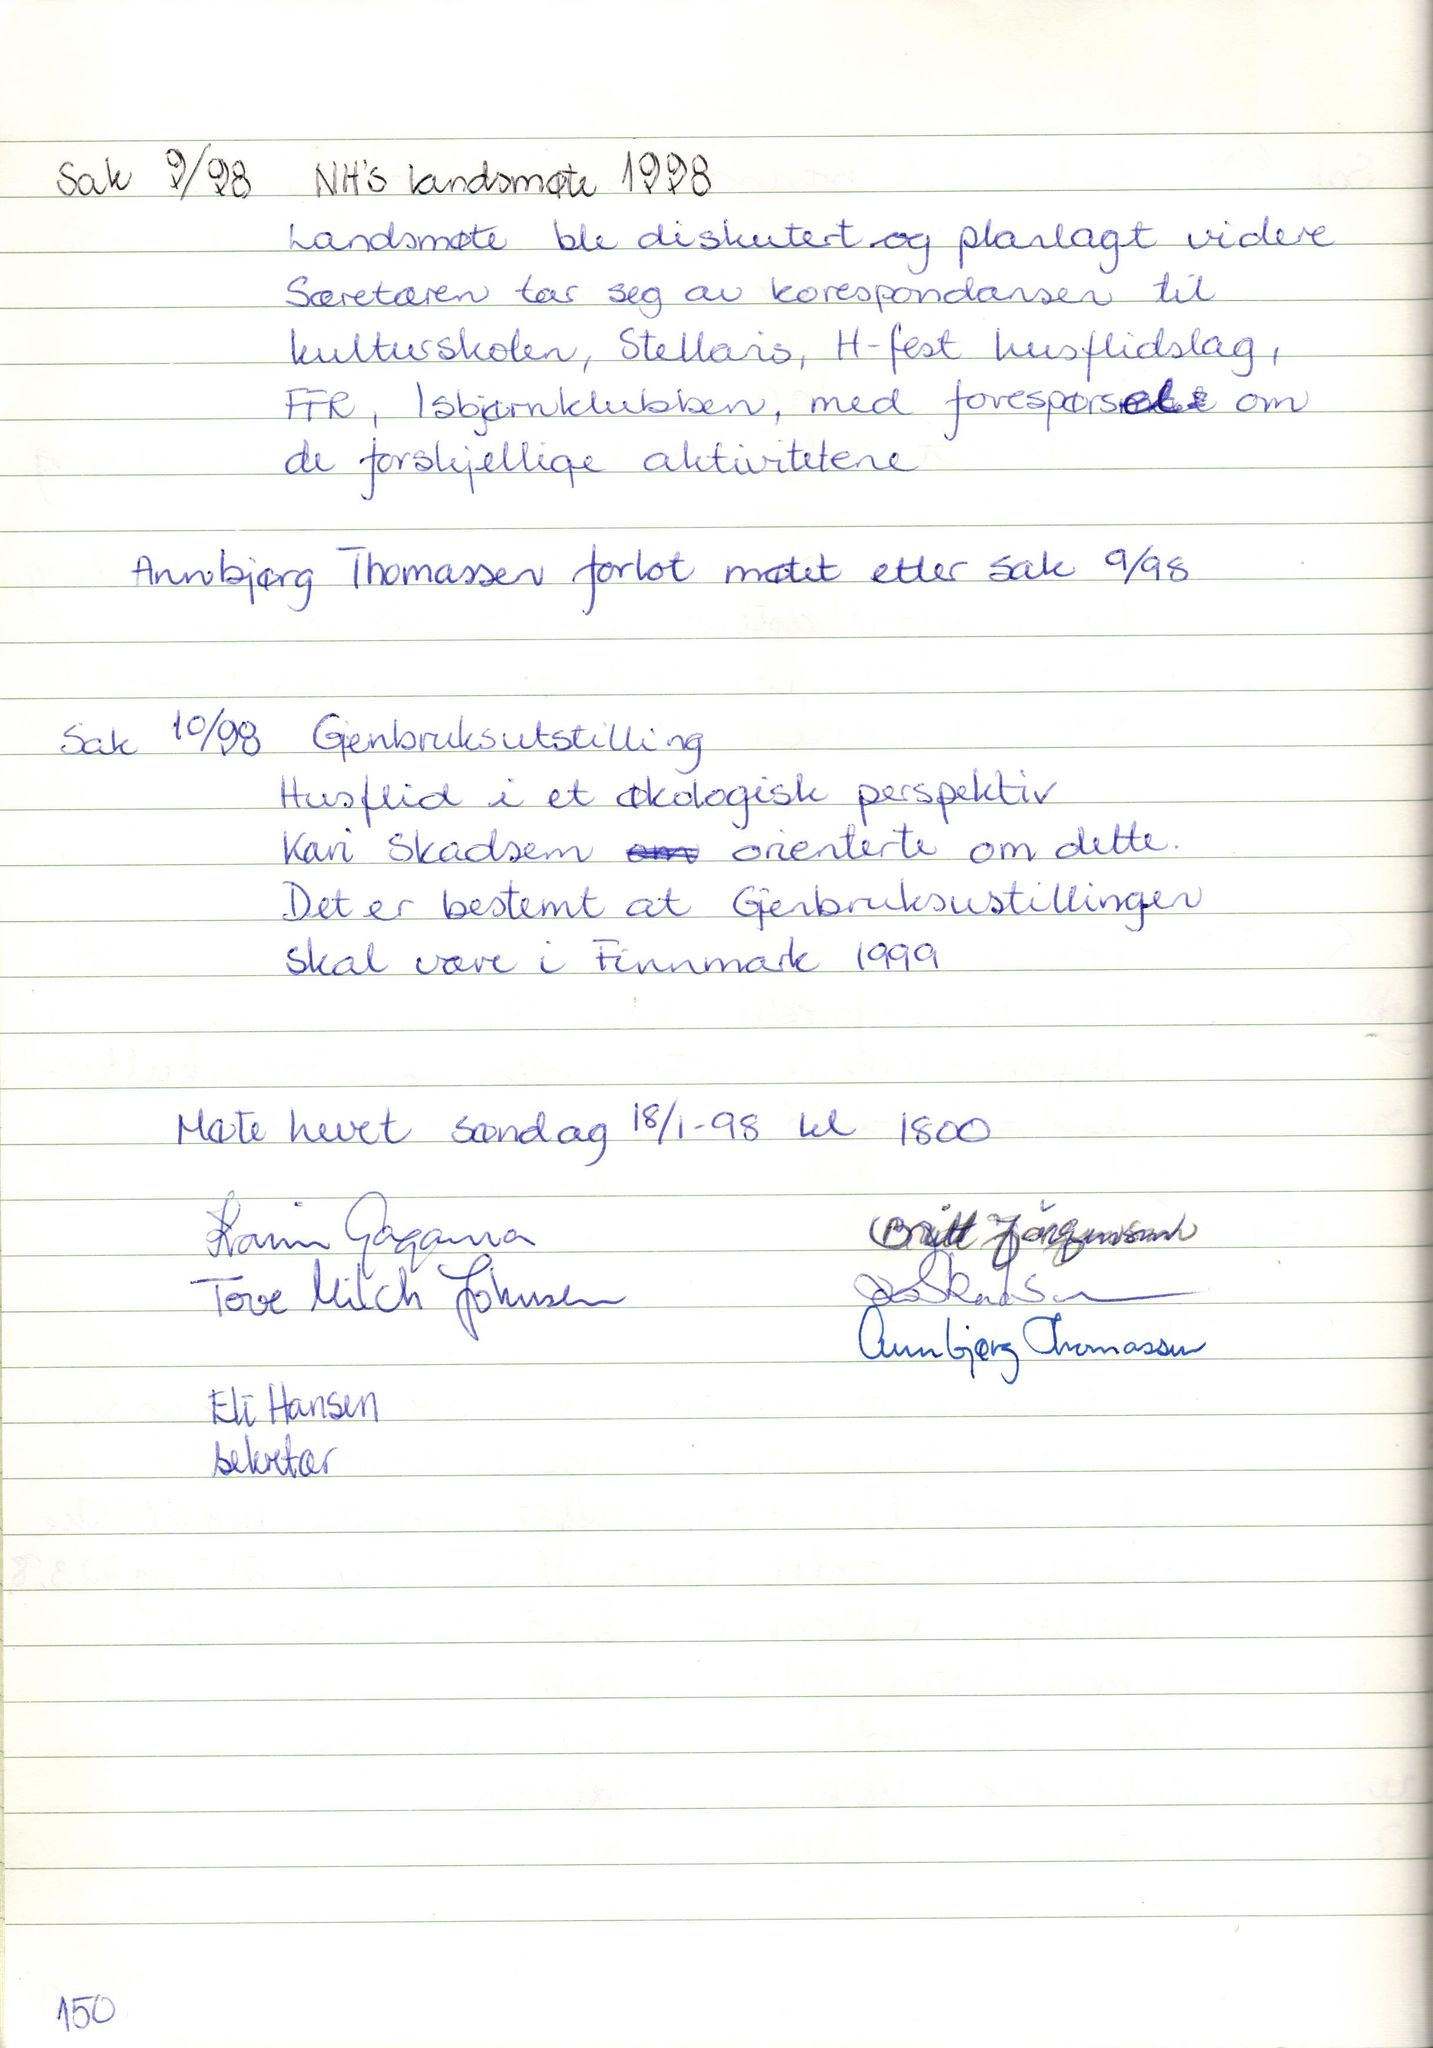 Sak 9/98 NH's landsmøte 1998
Landsmøte ble diskutert og planlagt videre
Særetæren tar seg av korespondansen til
kulturskolen, Stellaris, H-fest husflidslag,
FFR, Isbjørnklubben, med forespørsel om
de forskjellige aktivitetene
Annbjørg Thomassen forlot møtet etter sak 9/98
Sak 10/98 Gjenbruksutstilling
Husflid i et økologisk perspektiv
Kari Skadsem om orienterte om dette.
Det er bestemt at Gjenbruksustillingen
skal være i Finnmark 1999
Møte hevet søndag 18/1-98 kl 1800
Karin Gagama Britt Jørgensen
Tove Milch Johnsen
Annbjørg Thomassen
Eli Hansen
sekretær
150